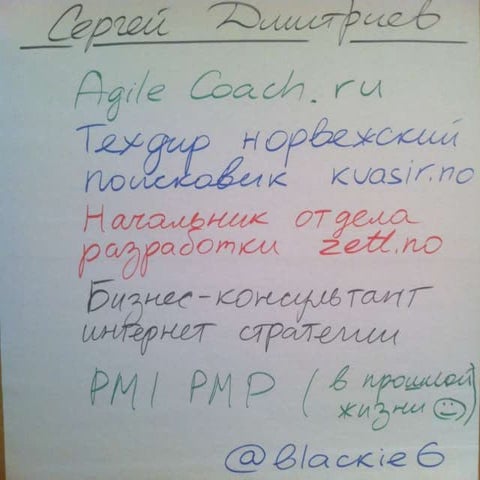 Сергей Дмитриев
Agile Coach.ru
Техдир норвежский
поисковик kvasir.no
Начальник отдела
разработки zett.no
Бизнес-консультант
интернет стратегии
PMI PMP (в прошлой
жизни ☺)
@blackie6